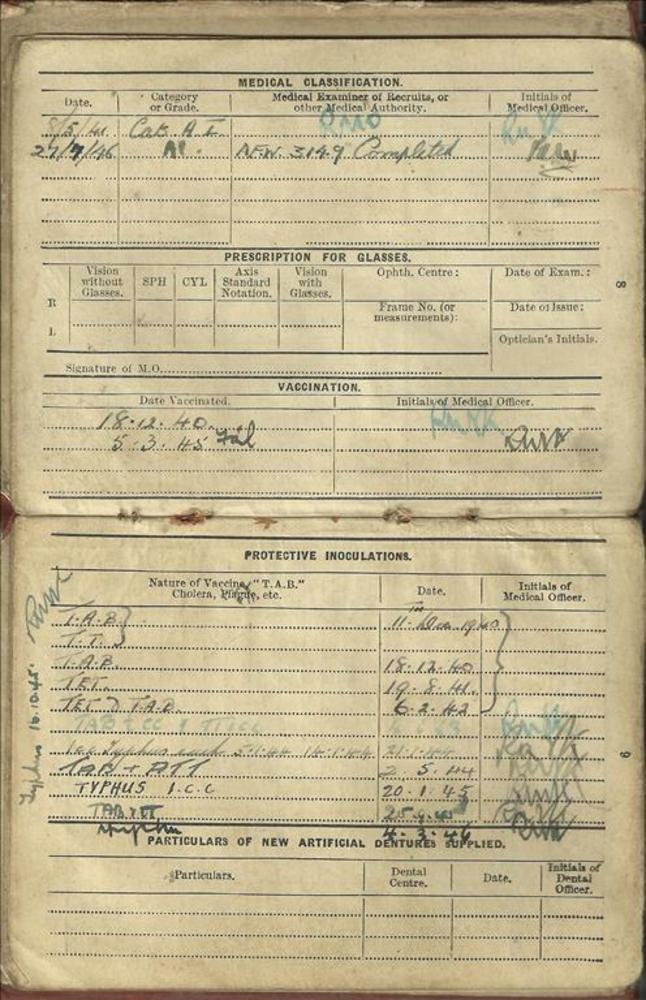 MEDICAL CLASSIFICATION.
Date. Category or Grade. Medical Examiner of Recruits, or other Medical Authority. Initials of Medical Officer.
8/5/41. Cat. A I. RMO
27/7/46 A1. A.F.W. 3149 Completed
PRESCRIPTION FOR GLASSES.
Vision without Glasses. SPH CYL Axis Standard Notation. Vision with Glasses. Ophth. Centre: Date of Exam.:
R
Frame No. (or measurements): Date of Issue:
L
Optician's Initials.
Signature of M.O.
8
VACCINATION.
Date Vaccinated. Initials of Medical Officer.
18.12.40.
5.3.45
PROTECTIVE INOCULATIONS.
Nature of Vaccine, "T.A.B." Cholera, Plague, etc. Date. Initials of Medical Officer.
T.A.B. 11. Dec 1940
T.T.
T.A.B. 18.12.40
TET. 19.8.41.
TET & T.A.B. 6.2.42
1cc Typhus each 5.1.44 14.1.44 21.1.44
TAB + ATT 2.5.44
TYPHUS I.C.C 20.1.45
TAB & TT
Typhus 4.3.46
Typhus 16.10.45.
9
PARTICULARS OF NEW ARTIFICIAL DENTURES SUPPLIED.
Particulars. Dental Centre. Date. Initials of Dental Officer.